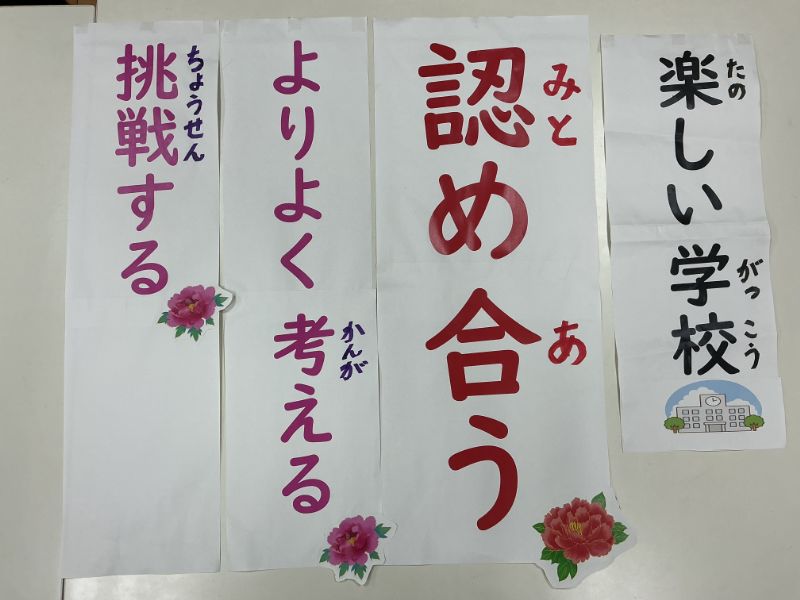 楽しい学校
たの
がっこう
認め合う
みと
あ
よりよく考える
かんが
挑戦する
ちょうせん